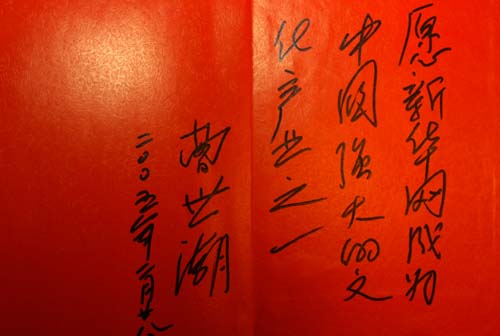 愿新华网成为
中国强大的文
化产业之一
曹世潮
二〇〇五年二月廿八